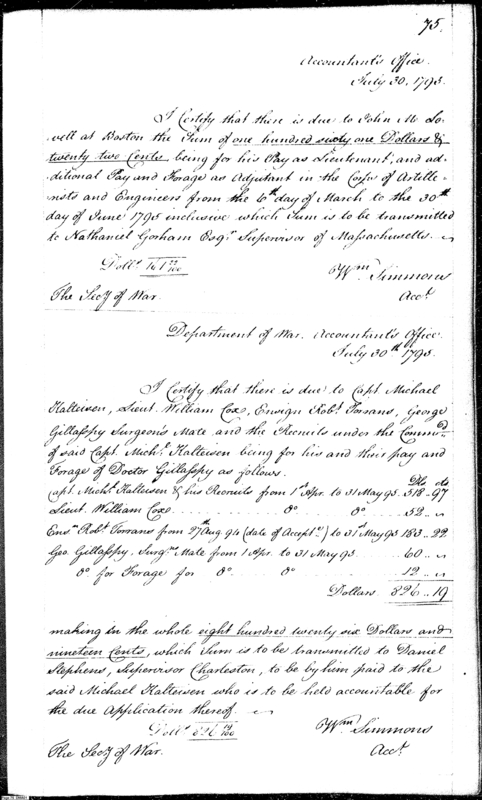 75.
Accountant's Office.
July 30, 1795.
I Certify that there is due to John M. Lo-
vell at Boston the Sum of one hundred sixty one Dollars &
twenty two Cents, being for his Pay as Lieutenant, and ad-
ditional Pay and Forage as Adjutant in the Corps of Artille-
rists and Engineers from the 6th day of March to the 30th
day of June 1795 inclusive which Sum is to be transmitted
to Nathaniel Gorham Esqr. Supervisor of Massachusetts.
Dolls. 161 22/100
Wm. Simmons
The Secy. of War.
Acct.
Department of War. Accountant's Office.
July 30th 1795.
I Certify that there is due to Capt. Michael
Kalteisen, Lieut. William Cox, Ensign Robt. Torrans, George
Gillasspy Surgeons Mate and the Recruits under the Commd.
of said Capt. Michl. Kalteisen being for his and their pay and
Forage of Doctor Gillasspy as follows.
Dls cts
Capt. Michl. Kalteisen & his Recruits from 1st Apr. to 31 May 95. 518..97
Lieut. William Cox do do 52.."
Ensn. Robt. Torrans from 27th Aug. 94 (date of Accepte.) to 31st May 95 183..22
Geo. Gillasspy, Surgns. Mate from 1 Apr. to 31 May 95. 60.."
do for Forage for do do 12.."
Dollars 826..19
making in the whole eight hundred twenty six Dollars and
nineteen Cents, which Sum is to be transmitted to Daniel
Stephens, Supervisor Charleston, to be by him paid to the
said Michael Kalteisen who is to be held accountable for
the due Application thereof.
Dolls. 826 19/100
Wm. Simmons
The Secy. of War.
Acct.